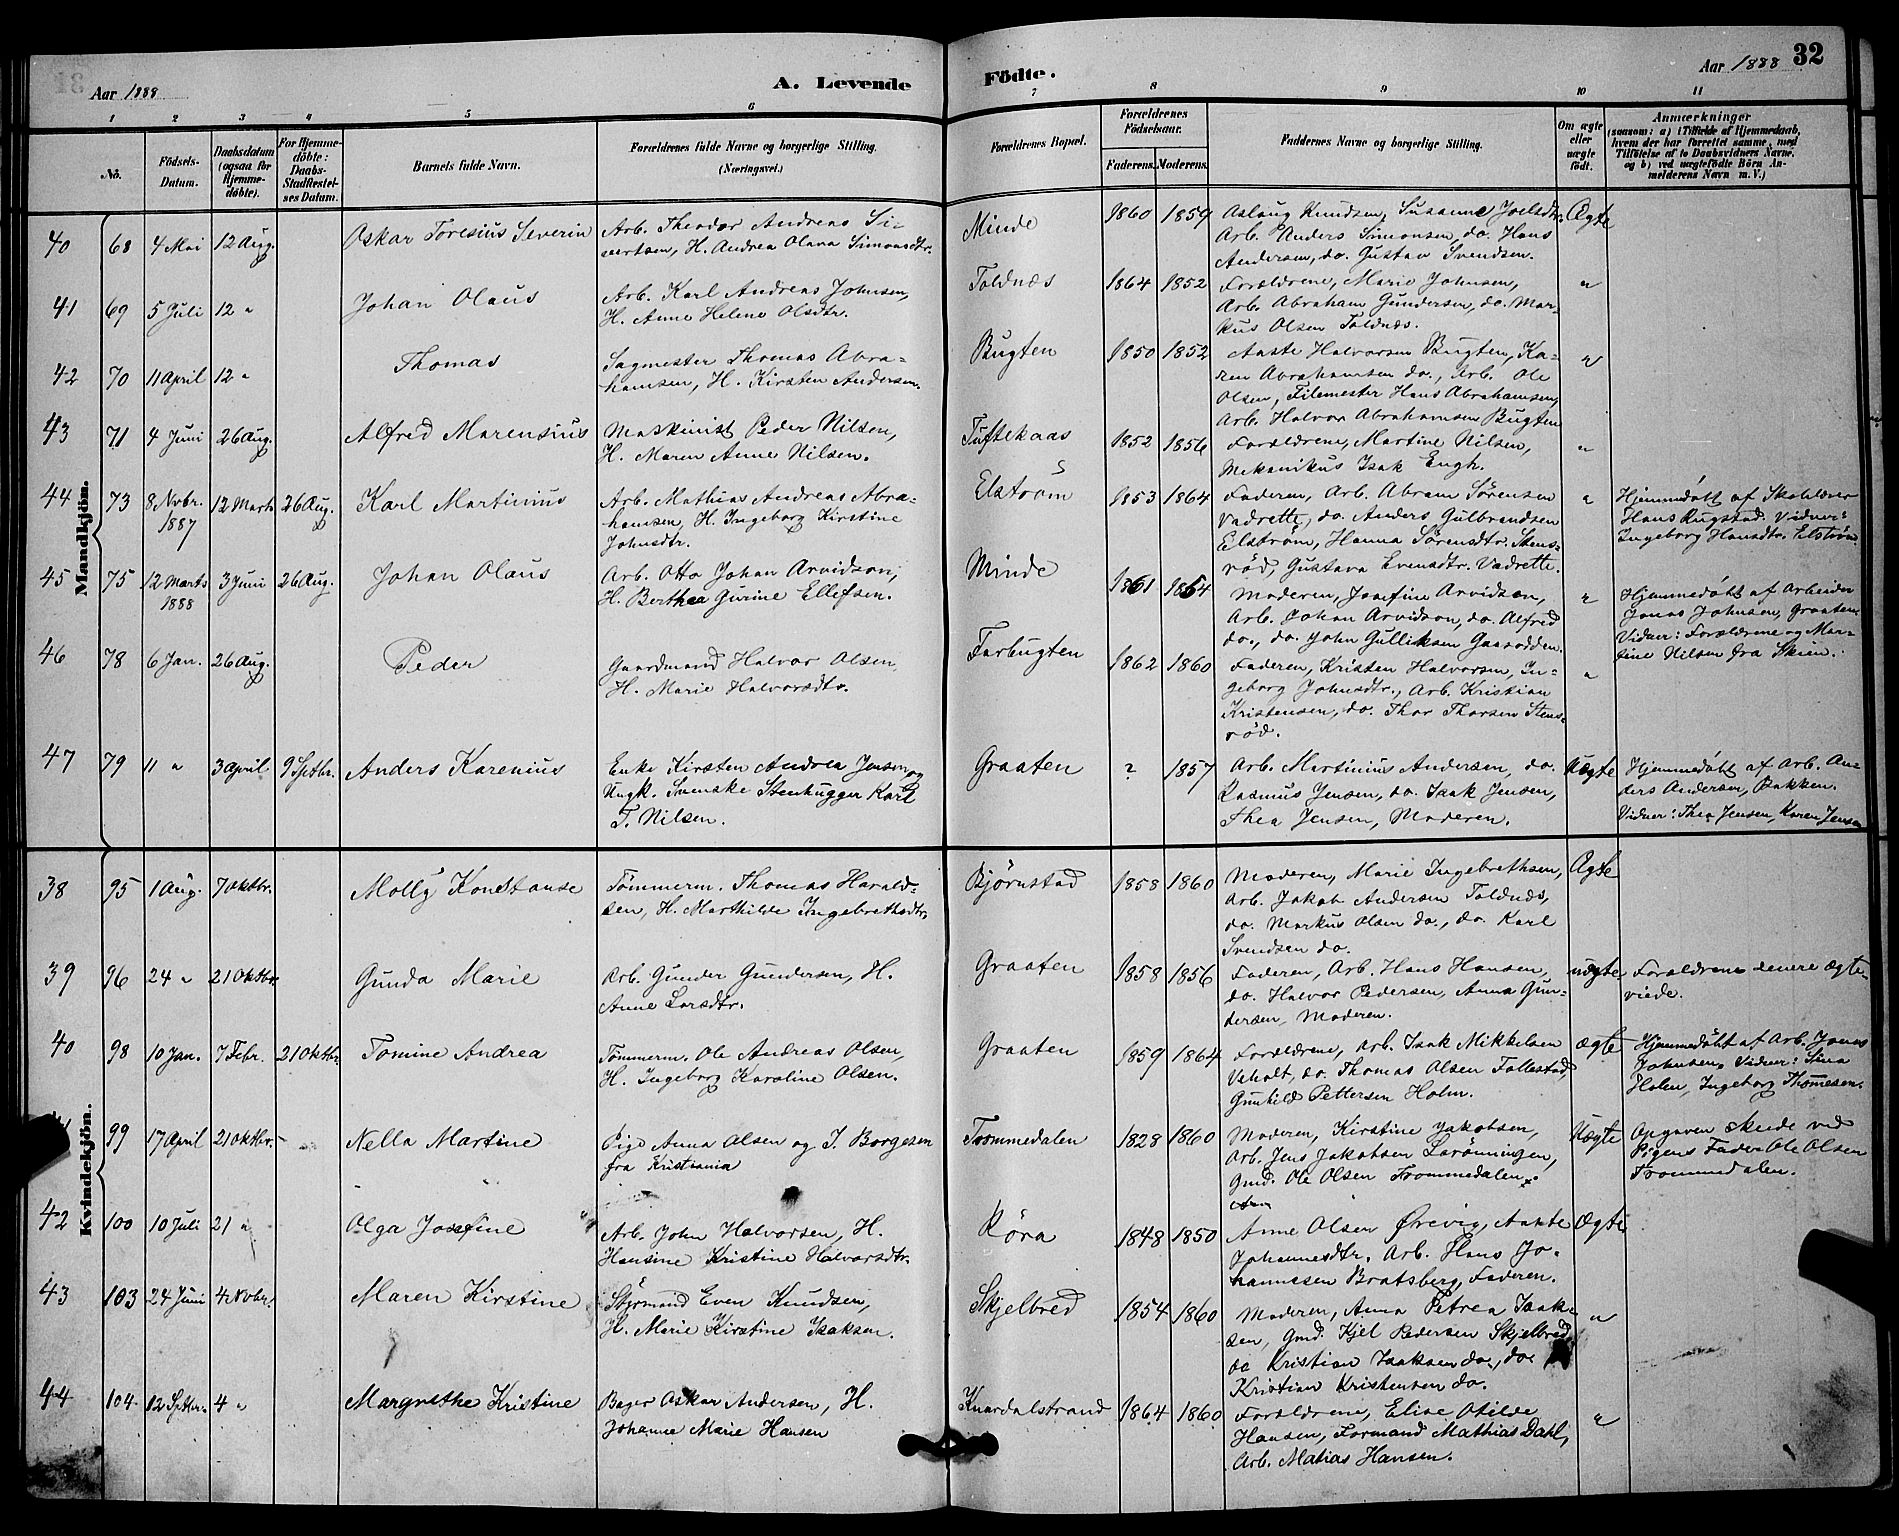 Aar 1888
A. Levende
Födte.
Aar 1888
32
1 2 3 4 5 6 7 8 9 10 11
No.
Födsels-Datum.
Daabsdatum (ogsaa for Hjemmedöbte).
For Hjemmedöbte: Daabs-Stadfæstelses Datum.
Barnets fulde Navn.
Forældrenes fulde Navne og borgerlige Stilling.
(Næringsvei.)
Forældrenes Bopæl.
Forældrenes Födselsaar.
Faderens. Moderens.
Faddernes Navne og borgerlige Stilling.
Om ægte eller uægte födt.
Anmærkninger
(saasom: a) i Tilfælde af Hjemmedaab, hvem der har forrettet samme, med Tilföielse af to Daabsvidners Navne, og b) ved uægtefödte Börn Anmelderens Navn m. V.)
Mandkjön.
40 68 4 Mai 12 Aug. Oskar Toresius Severin Arb. Theodor Andreas Si-
vertsen, H. Andrea Olava Simonsdtr.
Minde 1860 1859 Aslaug Knudsen, Susanne Joelsdtr. Ægte
Arb. Anders Simonsen, do. Hans
Andersen, do. Gustav Svendsen.
41 69 5 Juli 12 " Johan Olaus Arb. Karl Andreas Johnsen,
H. Anne Helene Olsdtr.
Toldnæs 1864 1852 Forældrene, Marie Johnsen, "
Arb. Abraham Gundersen, do. Mar-
kus Olsen Toldnæs.
42 70 11 April 12 " Thomas Sagmester Thomas Abra-
hamsen, H. Kirsten Andersen.
Bugten 1850 1852 Aaste Halvorsen Bugten, Ka- "
ren Abrahamsen do., Arb. Ole
Olsen, Filemester Hans Abrahamsen,
Arb. Halvor Abrahamsen Bugten
43 71 4 Juni 26 Aug. Alfred Marensius Maskinist Peder Nilsen,
H. Maren Anne Nilsen.
Tuftekaas 1852 1856 Forældrene, Martine Nilsen, "
Mekanikus Isak Engh.
44 73 8 Novbr. 1887 12 Marts 26 Aug. Karl Martinius Arb. Mathias Andreas Abra-
hamsen, H. Ingeborg Kirstine
Johnsdtr.
Elstrøm 1853 1864 Faderen, Arb. Abram Sørensen "
Vadrette, do. Anders Gulbrandsen
Elstrøm, Hanna Sørensdtr. Stens-
rød, Gustava Evensdtr. Vadrette.
Hjemmedøbt af Skolelærer
Hans Rugstad. Vidner:
Ingeborg Hansdtr. Elstrøm
45 75 12 Marts 1888 3 Juni 26 Aug. Johan Olaus Arb. Otto Johan Arvidson,
H. Berthea Gurine Ellefsen.
Minde 1861 1864 Moderen, Josefine Arvidson, "
Arb. Johan Arvidson, do. Alfred
do., do. John Gulliksen Gaasodden.
Hjemmedøbt af Arbeider
Jonas Johnsen, Graaten
Vidner: Forældrene og Mar-
tine Nilsen fra Skien.
46 78 6 Jan. 26 Aug. Peder Gaardmand Halvor Olsen,
H. Marie Halvorsdtr.
Tarbugten 1862 1860 Faderen, Kristen Halvorsen, In- "
geborg Johnsdtr., Arb. Kristian
Kristensen, do. Thor Thorsen Stens-
rød.
47 79 11 " 3 April 9 Septbr. Anders Karenius Enke Kirsten Andrea Jensen og
Ungk. Svenske Stenhugger Karl
T. Nilsen.
Graaten ? 1857 Arb. Martinius Andersen, do. Uægte
Rasmus Jensen, do. Isak Jensen,
Thea Jensen, Moderen.
Hjemmedøbt af Arb. An-
ders Andersen, Bakken.
Vidner: Thea Jensen, Karen Jensen
Kvindekjön.
38 95 1 Aug. 7 Oktbr. Molly Konstanse Tömmerm. Thomas Harald-
sen, H. Marthilde Ingebrethsdtr.
Bjørnstad 1858 1860 Moderen, Marie Ingebrethsen, Ægte
Arb. Jakob Andersen Toldnæs,
do. Markus Olsen do., do. Karl
Svendsen do.
39 96 24 " 21 Oktbr. Gunda Marie Arb. Gunder Gundersen, H.
Anne Larsdtr.
Graaten 1858 1856 Faderen, Arb. Hans Hansen, uægte
do. Halvor Pedersen, Anna Gun-
dersen, Moderen.
Forældrene senere ægte-
viede.
40 98 10 Jan. 7 Febr. 21 Oktbr. Tomine Andrea Tömmerm. Ole Andreas Olsen,
H. Ingeborg Karoline Olsen.
Graaten 1859 1864 Forældrene, Arb. Isak Mikkelsen ægte
Veholt, do. Thomas Olsen Follestad,
Gunhild Pettersen Holm.
Hjemmedøbt af Arb. Jonas
Johnsen. Vidner: Sina
Holm, Ingeborg Thomesen.
99 17 April 21 Oktbr. Nella Martine Pige Anna Olsen og J. Borgesen
fra Kristiania
Trommedalen 1828 1860 Moderen, Kirstine Jakobsen, Uægte
Arb. Jens Jakobsen Lerönningen,
Gmd. Ole Olsen Trommedalen.
Opgaven skeede ved
Pigens Fader Ole Olsen
Trommedalen.
42 100 10 Juli 21 " Olga Josefine Arb. John Halvorsen, H.
Hansine Kristine Halvorsdtr.
Röra 1848 1850 Anne Olsen Ørevig, Aaste Ægte
Johannesdtr. Arb. Hans Jo-
hannesen Bratsberg, Faderen.
43 103 24 Juni 4 Novbr. Maren Kirstine Styrmand Even Knudsen,
H. Marie Kirstine Isaksen.
Skjelbred 1854 1860 Moderen, Anna Petrea Isak- "
sen, Gmd. Kjel Pedersen Skjelbred
do Kristian Isaksen do., do
Kristian Kristensen do.
44 104 12 Septbr. 4 " Margrethe Kristine Bager Oskar Andersen, H.
Johanne Marie Hansen
Knardalstrand 1864 1860 Forældrene, Elise Otilde "
Hansen, Formand Mathias Dahl,
Arb. Matias Hansen.